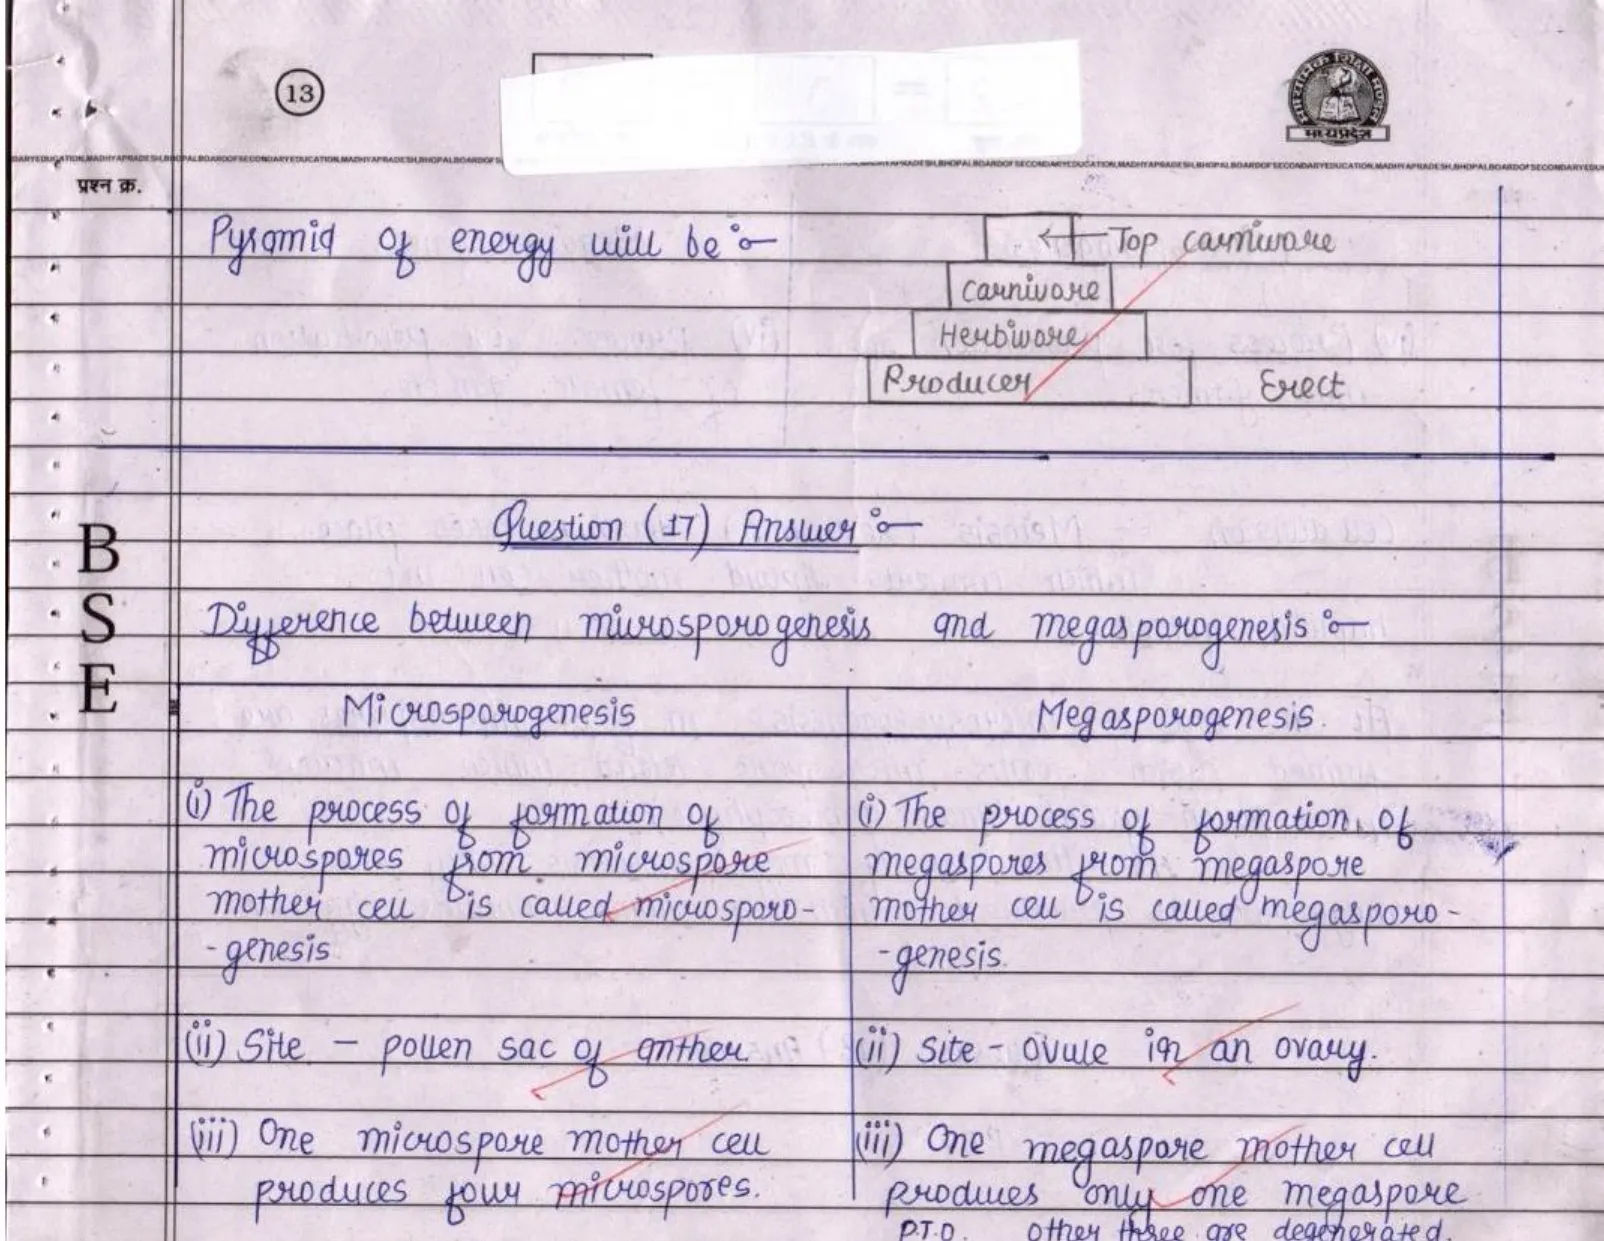 13
मध्यप्रदेश
प्रश्न क्र.
Pyramid of energy will be :-
Top carnivore
Carnivore
Herbivore
Producer
Erect
Question (17) Answer :-
BSE
Difference between microsporogenesis and megasporogenesis :-
Microsporogenesis
(i) The process of formation of
microspores from microspore
mother cell is called microsporo-
-genesis
(ii) Site - pollen sac of anther.
(iii) One microspore mother cell
produces four microspores.
Megasporogenesis.
(i) The process of formation of
megaspores from megaspore
mother cell is called megasporo-
-genesis.
(ii) Site - Ovule in an ovary.
(iii) One megaspore mother cell
produces only one megaspore
P.T.O. other three are degenerated.